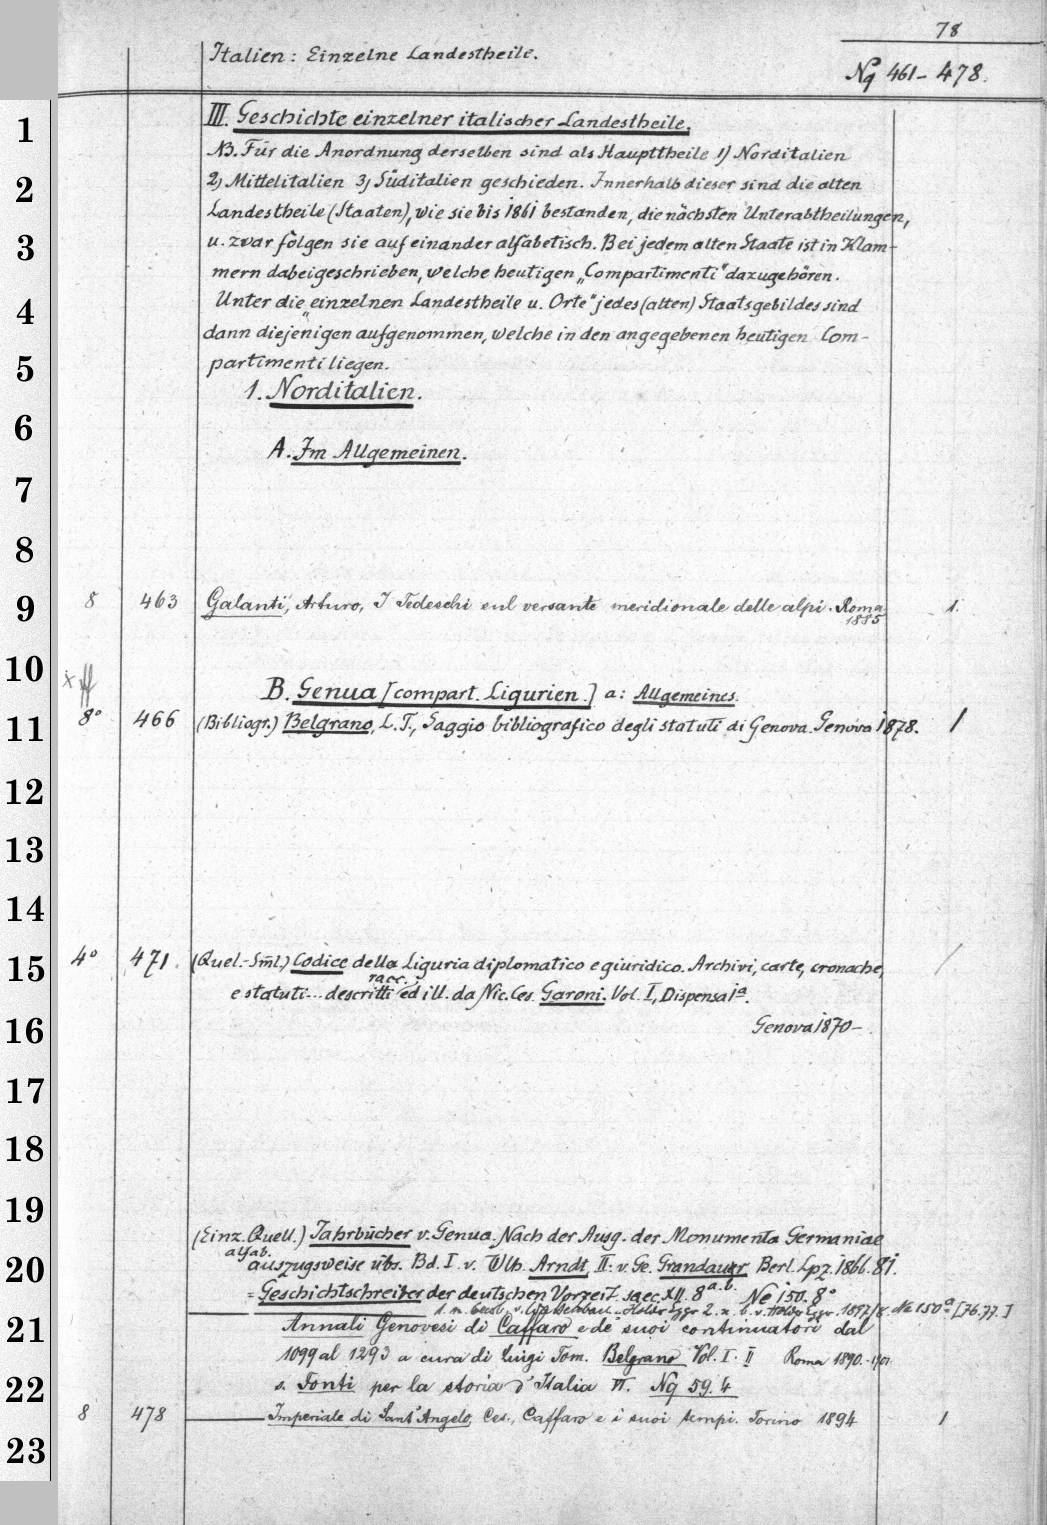 78
Italien: Einzelne Landestheile.
Nq 461-478.
III. Geschichte einzelner italischer Landestheile.
NB. Für die Anordnung derselben sind als Haupttheile 1) Norditalien
2) Mittelitalien 3) Süditalien geschieden. Innerhalb dieser sind die alten
Landestheile (Staaten), wie sie bis 1861 bestanden, die nächsten Unterabtheilungen,
u. zwar folgen sie auf einander alfabetisch. Bei jedem alten Staate ist in Klam-
mern dabeigeschrieben, welche heutigen „Compartimenti" dazugehören.
Unter die „einzelnen Landestheile u. Orte" jedes (alten) Staatsgebildes sind
dann diejenigen aufgenommen, welche in den angegebenen heutigen Com-
partimenti liegen.
1. Norditalien.
A. Im Allgemeinen.
8 463 Galanti, Arturo, I Tedeschi sul versante meridionale delle alpi. Roma 1.
1885
B. Genua [compart. Ligurien.] a: Allgemeines.
8° 466 (Bibliogr.) Belgrano, L. T., Saggio bibliografico degli statuti di Genova. Genova 1878. 1
4° 471. (Quel.-Sml.) Codice della Liguria diplomatico e giuridico. Archivi, carte, cronache, /
racc.
e statuti... descritti ed ill. da Nic. Ces. Garoni. Vol. I, Dispensa 1a.
Genova 1870-
(Einz. Quell.) Jahrbücher v. Genua. Nach der Ausg. der Monumenta Germaniae
alfab.
auszugsweise übs. Bd. I. v. Wlh. Arndt, II: v. Ge. Grandaur Berl. Lpz. 1866. 81.
= Geschichtschreiber der deutschen Vorzeit. saec. XII. 8 a.b. Ne 150. 8°
2. v. Holder Egger. 1897/8. Ne 150a [76.77.]
Annali Genovesi di Caffaro e de' suoi continuatori dal
1099 al 1293 a cura di Luigi Tom. Belgrano Vol. I. II Roma 1890.-1901
s. Fonti per la storia d'Italia VI. Nq 59.4
8 478 Imperiale di Sant'Angelo, Ces., Caffaro e i suoi tempi. Torino 1894 1
1
2
3
4
5
6
7
8
9
10
11
12
13
14
15
16
17
18
19
20
21
22
23